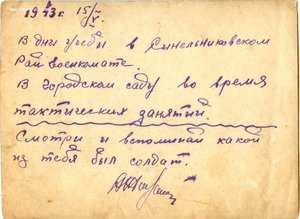 1943 г. 15/V
В дни учебы в Синельниковском
Рай Военкомате.
В городском саду во время
тактических занятий.
Смотри и вспоминай какой
из тебя был солдат.